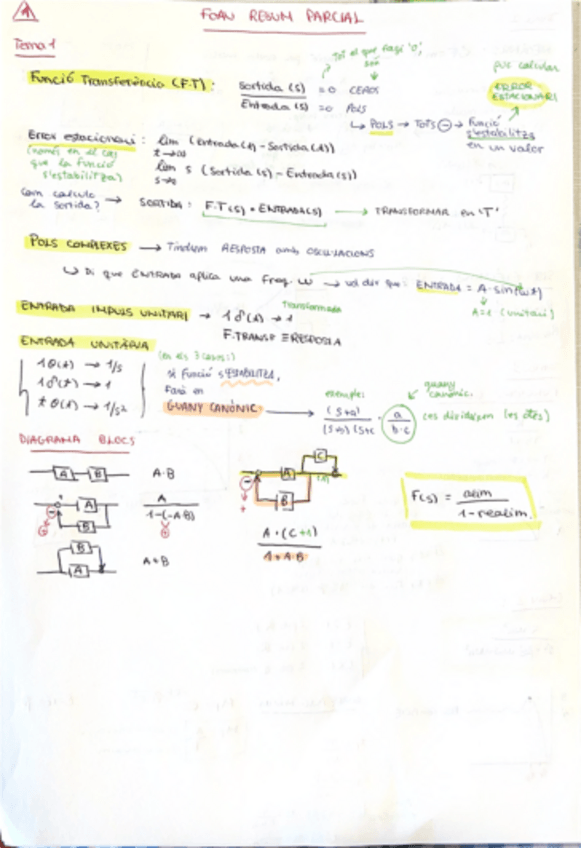 1
FOAN RESUM PARCIAL
Tema 1
Tot el que faci '0';
son
per calcular
Funció Transferència (F.T):
Sortida (s) = 0 CEROS
Entrada (s) = 0 POLS
ERROR
ESTACIONARI
↳ POLS → TOTS ⊖ → Funció
s'estabilitza
en un valor
Error estacionari : lim (Entrada(t) - Sortida(t))
t→∞
(només en el cas
que la funció
s'estabilitza)
lim s (Sortida(s) - Entrada(s))
s→0
Com calculo
la sortida?
→ SORTIDA : F.T(s) · ENTRADA(s) → TRANSFORMAR en 'T'
POLS COMPLEXES → Tindrem RESPOSTA amb OSCIL·LACIONS
↳ Di que ENTRADA aplica una freq. ω → vol dir que: ENTRADA = A·sin(ωt)
A=1 (unitari)
ENTRADA IMPULS UNITARI → 1δ(t) → 1
Transformada
F.TRANSF ≡ RESPOSTA
ENTRADA UNITÀRIA
(en els 3 casos:)
1θ(t) → 1/s
1δ(t) → 1
tθ(t) → 1/s²
si funció s'ESTABILITZA,
farà en
GUANY CANÒNIC →
exemple:
guany
canònic.
(s+a)
(s+b)(s+c
a
b·c
(es divideixen les ctes)
DIAGRAMA BLOCS
A B A·B
A
B
A
1-(-AB)
B
A
A+B
C
A
B
A·(C+1)
1+AB
F(s) = alim
1-realim.